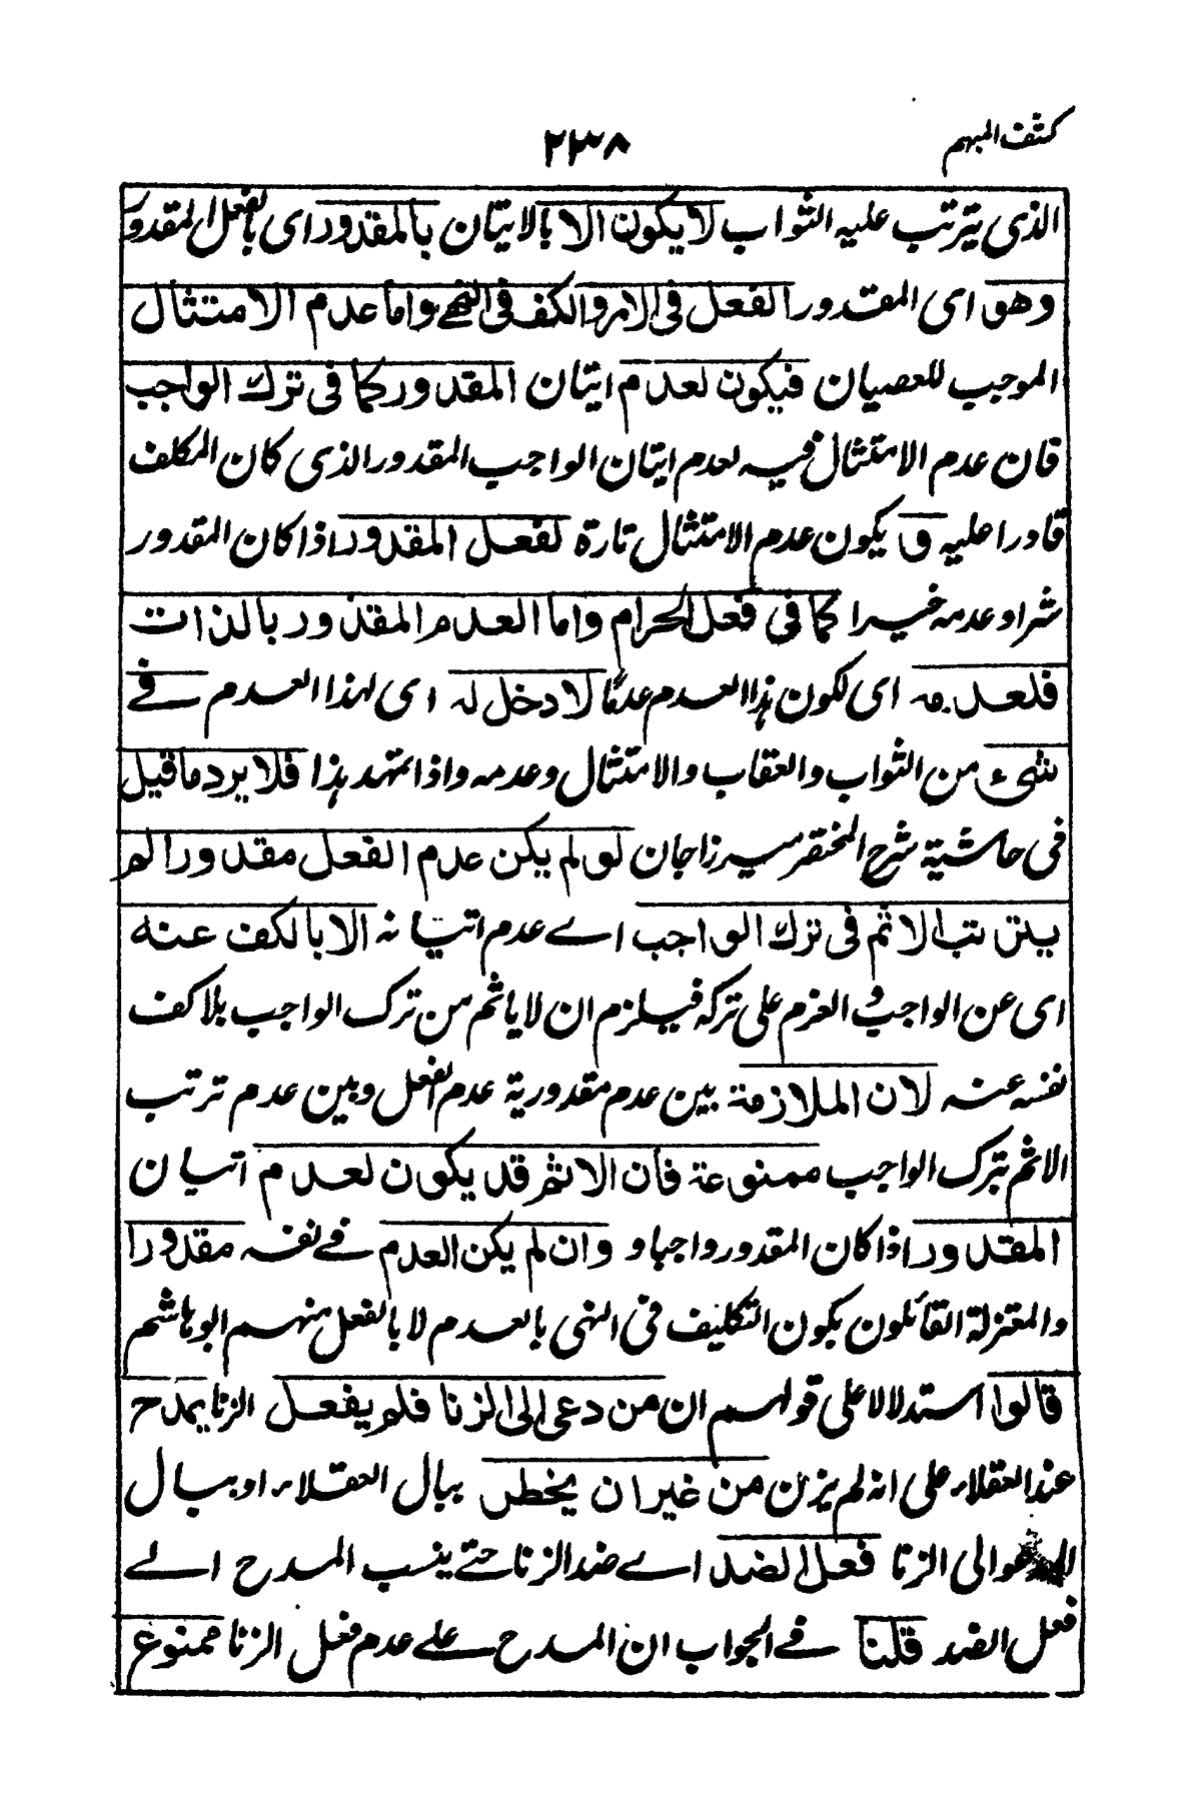 كشف المبهم
٢٣٨
الذى يترتب عليه الثواب لا يكون الا بالاتيان بالمقدور اى بالفعل المقدور
وهو اى المقدور الفعل فى الامر والكف فى النهے واما عدم الامتثال
الموجب للعصيان فيكون لعدم اتيان المقدور كما فى ترك الواجب
فان عدم الامتثال فيه لعدم اتيان الواجب المقدور الذى كان المكلف
قادرا عليه و يكون عدم الامتثال تارة لفعل المقدور اذا كان المقدور
شرا و عدمه خيرا كما فى فعل الحرام واما العدم المقدور بالذات
فلعدمه اى لكون هذا العدم عدما لا دخل له اى لهذا العدم فے
شىء من الثواب والعقاب والامتثال وعدمه واذا تمهد هذا فلا يرد ما قيل
فى حاشية شرح المختصر ميرزاجان لو لم يكن عدم الفعل مقدورا لم
يترتب الاثم فى ترك الواجب اے عدم اتيانه الا بالكف عنه
اى عن الواجب و العزم على تركه فيلزم ان لا ياثم من ترك الواجب بلا كف
نفسه عنه لان الملازمة بين عدم مقدورية عدم الفعل وبين عدم ترتب
الاثم بترك الواجب ممنوعة فان الاثم قد يكون لعدم اتيان
المقدور اذا كان المقدور واجبا و وان لم يكن العدم فے نفسه مقدورا
والمعتزلة القائلون بكون التكليف فى النهى بالعدم لا بالفعل منهم ابو هاشم
قالوا استدلالا على قولهم ان من دعى الى الزنا فلم يفعل الزنا يمدح
عند العقلاء على انه لم يزن من غير ان يخطر ببال العقلاء او ببال
المدعو الى الزنا فعل الضد اے ضد الزنا حتے ينسب المدح الے
فعل الضد قلنا فے الجواب ان المدح علے عدم فعل الزنا ممنوع